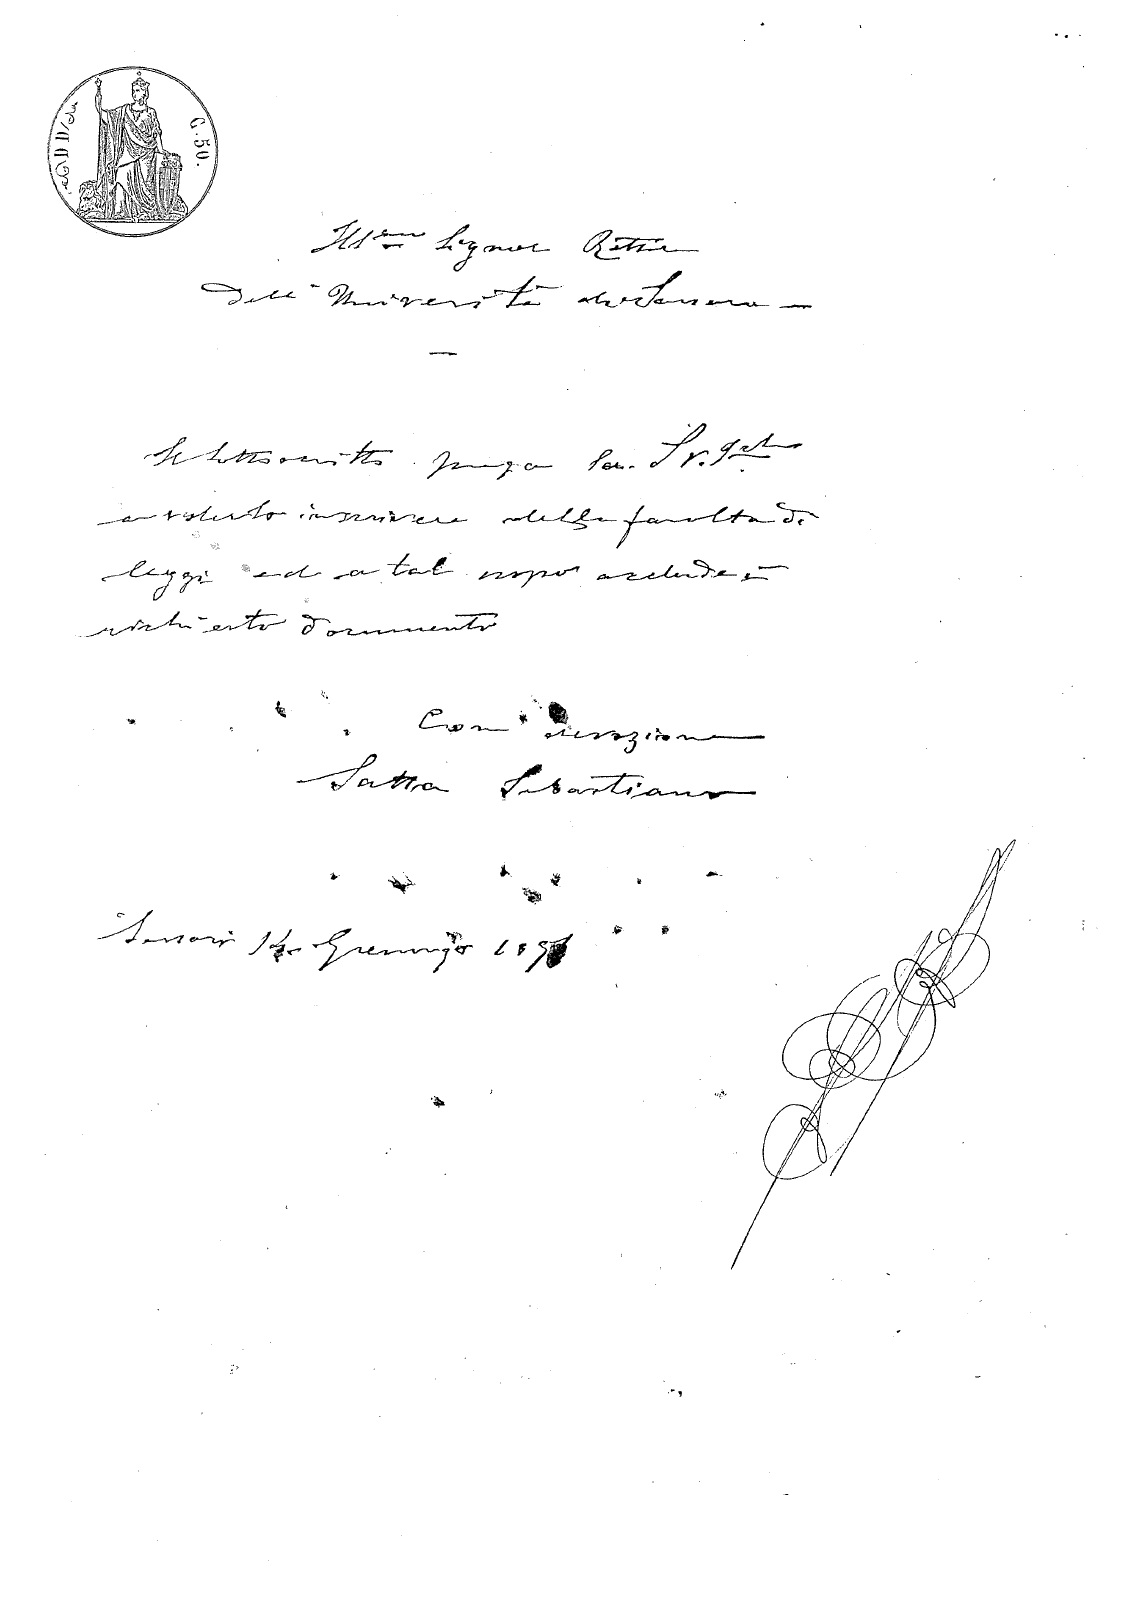 C. 50.
Ill.mo Signor Rettore
dell'Università di Sassari
Il sottoscritto prega la S. V.
a volerlo inscrivere nella facoltà di
leggi ed a tal uopo acclude il
richiesto documento
Con devozione
Satta Sebastiano
Sassari 14 Gennajo 189